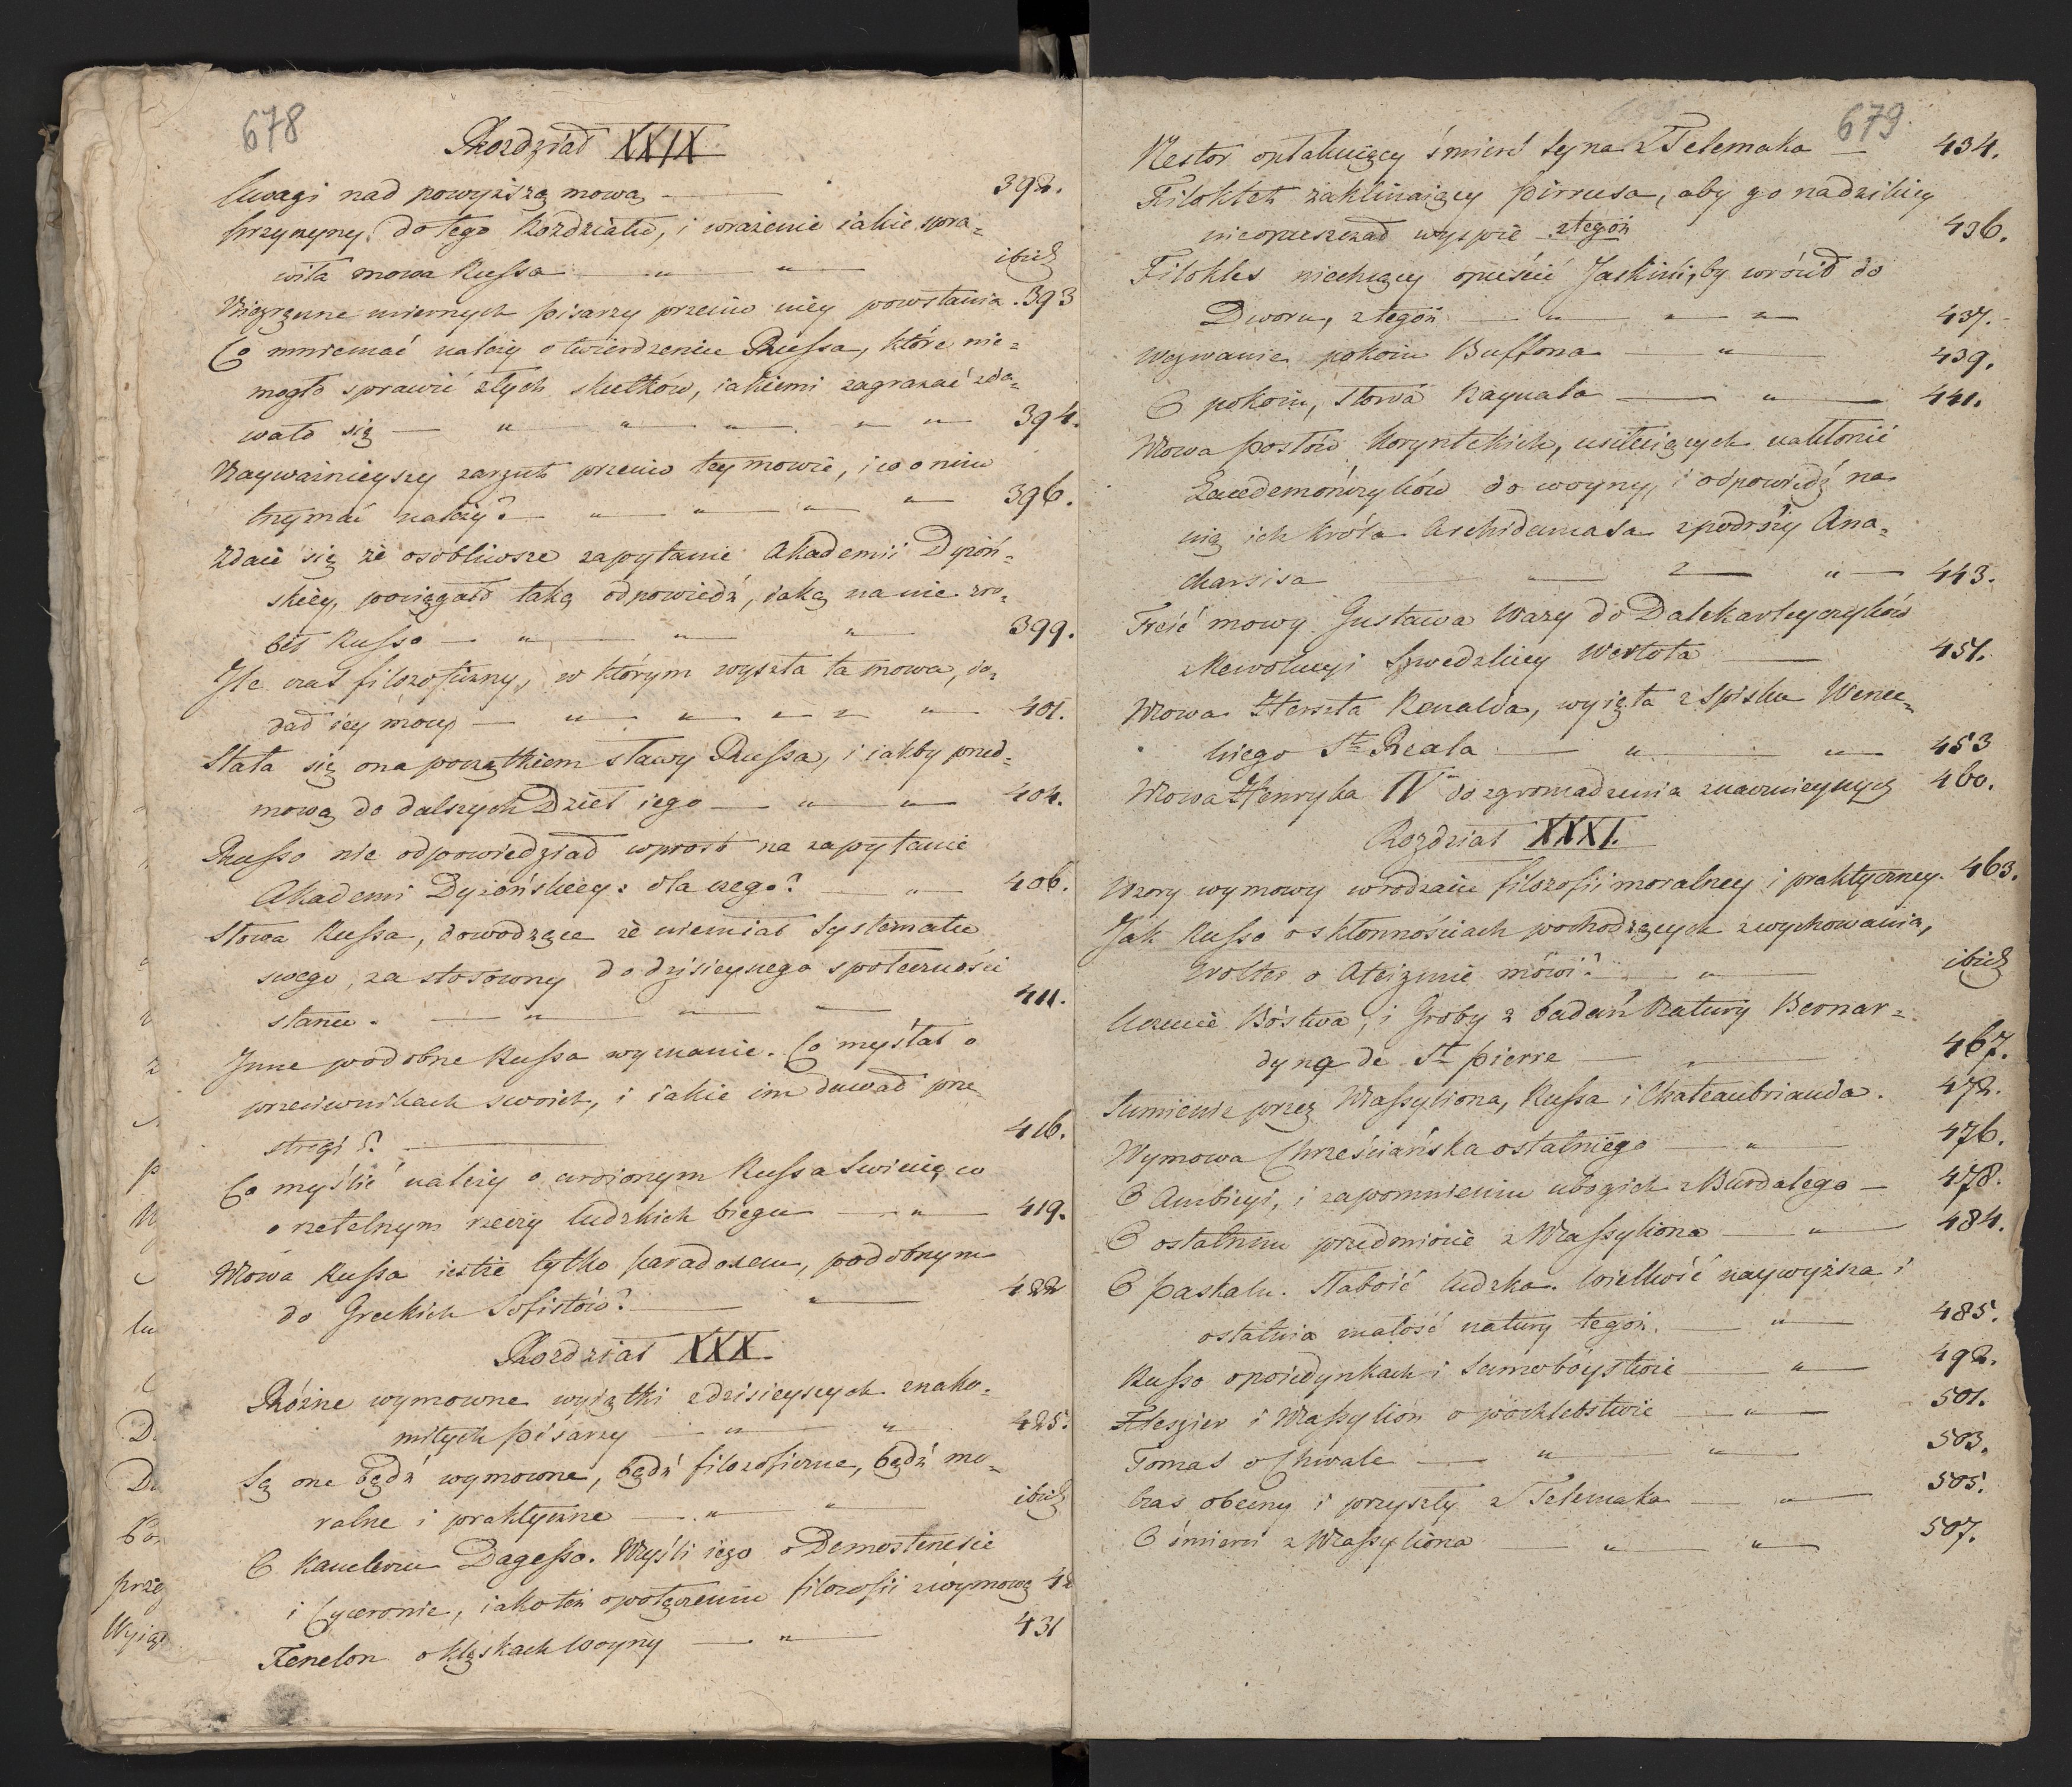 678
Rozdział XXIX
Uwagi nad powyższą mową — 392.
Przyczyny do tego Rozdziału, i wrażenie iakie spra=
wiła mowa Russa — " — " — ibid
miernych pisarzy przeciw niey powstania . 393
Co mniemać należy o twierdzeniu Russa, które nie=
mogło sprawić złych skutków, iakiemi zagrażać zda=
wało się — " — " — " — " — " — 394.
Nayważnieyszy zarzut przeciw tey mowie, i co o nim
trzymać należy? — " — " — " — " — 396.
Zdaie się że osobliwsze zapytanie Akademii Dyżoń=
skiey, pociągało taką odpowiedź, iaką na nie zro=
bił Russo — " — " — " — 399.
Ile czas filozoficzny, w którym wyszła ta mowa, do=
dał iey mocy — " — " — " — " — 401.
Stała się ona początkiem sławy Russa, i iakby przed=
mową do dalszych Dzieł iego — " — " — 404.
Russo nie odpowiedział wprost na zapytanie
Akademi Dyżońskiey: dla czego? — " — 406.
Słowa Russa, dowodzące że niemiał Systematu
swego, za stosowny do dzisieyszego społeczności
stanu . — " — " — " — 411.
Inne podobne Russa wyznanie. Co myślał o
przeciwnikach swoich, i iakie im dawał prze=
strogi? — 416.
Co myślić należy o uroionym Russa Swiecie, co
o rzetelnym rzeczy ludzkich biegu — " — 419.
Mowa Russa iestże tylko paradoxem, podobnym
do Greckich Sofistów? — " — 422
Rozdział XXX.
Różne wymowne wyiątki z dzisieyszych znako=
mitych pisarzy — " — " 425.
Są one bądź wymowne, bądź filozoficzne, bądź mo=
ralne i praktyczne — " — " — ibid
O Kanclerzu Dagesso. Myśli iego o Demostenesie
i Cyceronie, iakoteż o połączeniu filozofii z wymową 42
Fenelon o klęskach Woyny — " — 431
679
Nestor opłakuiący śmierć Syna z Telemaka — 434.
Filoktet zaklinaiący Pirrusa, aby go na dzikiey
nieopuszczał wyspie z tegoż 436.
Filokles niechcący opuścić Jaskini, by wrócił do
Dworu, z tegoż — " — " — " — 437.
Wezwanie pokoiu Buffona — " — 439.
O pokoiu, słowa Raynala — " — 441.
Mowa Posłów Koryntskich, usiłuiących nakłonić
Lacedemończyków do woyny, i odpowiedź na
nią ich króla Archidamasa z podróży Ana=
charsisa — " — " — 443.
Treść mowy Gustawa Wazy do Dalekarleyczyków
z Rewolucyi Szwedzkiey Wertota — 451.
Mowa Herszta Renalda, wyięta z Spisku Wenec=
kiego St Reala — " — " — 453
Mowa Henryka IV do zgromadzenia znacznieyszych 460.
Rozdział XXXI.
Wzory wymowy w rodzaiu filozofii moralney i praktyczney. 463.
Jak Russo o skłonnościach pochodzących z wychowania,
Wolter o Ateizmie mówi? — " — ibid
Uczucie Bóstwa, i Groby z badań Natury Bernar=
dyna de St Pierre — " — 467.
Sumienie przez Massyliona, Russa i Chateaubrianda. 472.
Wymowa Chrześciańska ostatniego — " — 476.
O Ambicyi, i zapomnieniu ubogich z Burdalego — 478.
O ostatnim przedmiocie z Massyliona — " — 484.
O Paskalu. Słabość ludzka. Wielkość naywyższa i
ostatnia małość natury tegoż. — " — 485.
Russo o poiedynkach i Samobóystwie — " — 492.
Fleszier i Massylion o pochlebstwie — " — 501.
Tomas o Chwale — " — " — 503.
Czas obecny i przyszły z Telemaka — " — 505.
O śmierci z Massyliona — " — " — 507.